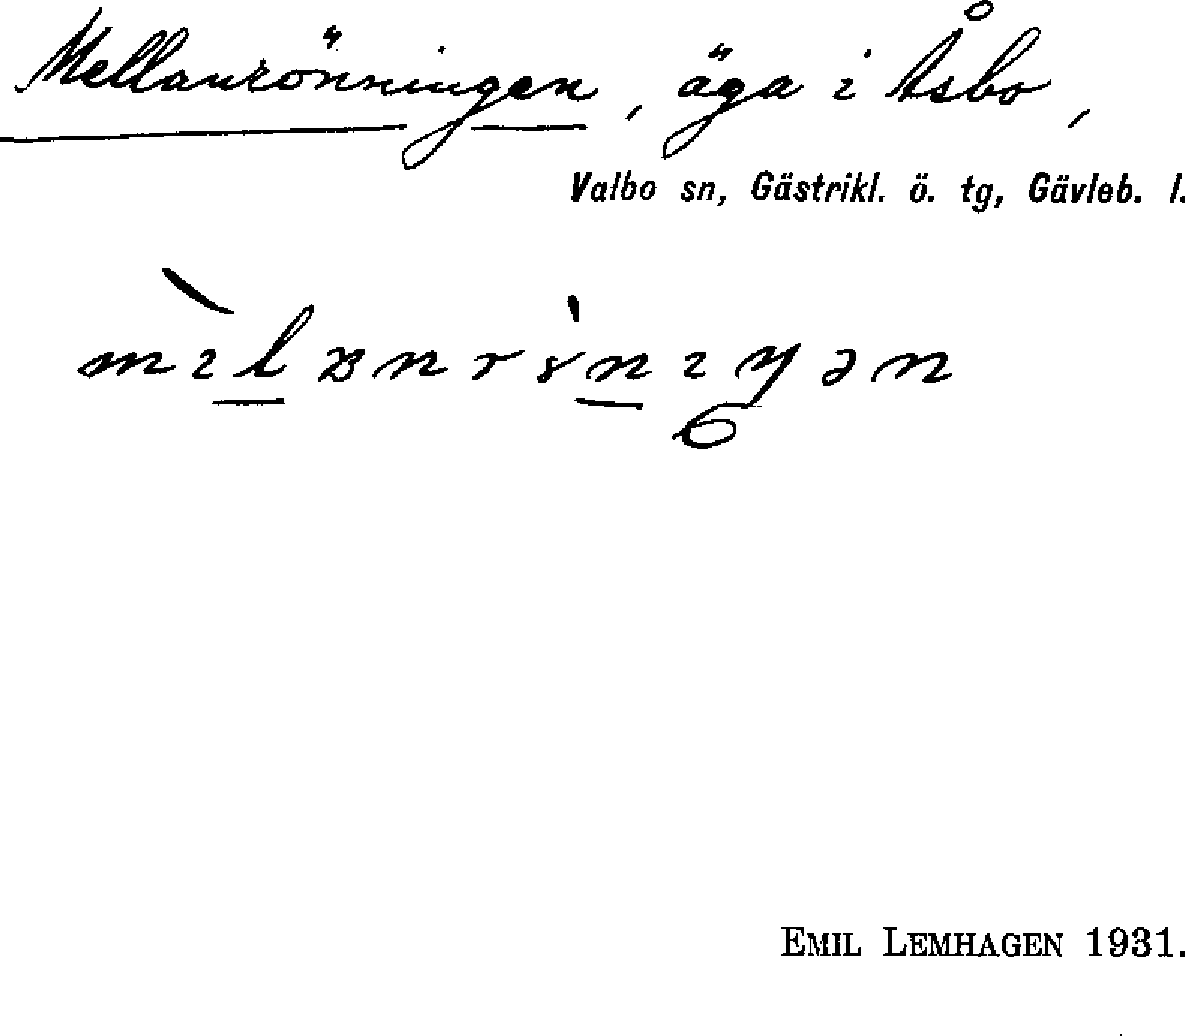 Mellanrönningen, äga i Åsbo,
Valbo sn, Gästrikl. ö. tg, Gävleb. l.
EMIL LEMHAGEN 1931.